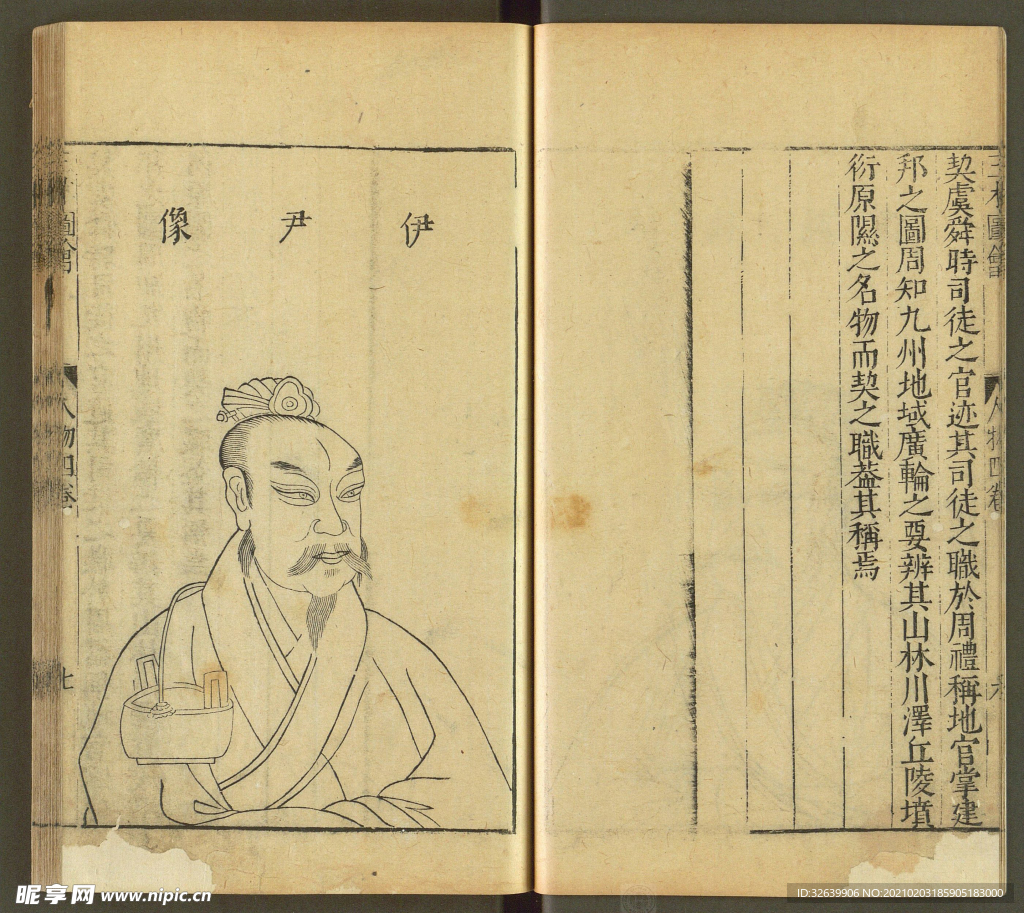 三才圖會
人物四卷
六
契虞舜時司徒之官迹其司徒之職於周禮稱地官掌建
邦之圖周知九州地域廣輪之要辨其山林川澤丘陵墳
衍原隰之名物而契之職葢其稱焉
伊尹像
圖會
人物四卷
七
昵享网 www.nipic.cn
ID:32639906 NO:20210203185905183000